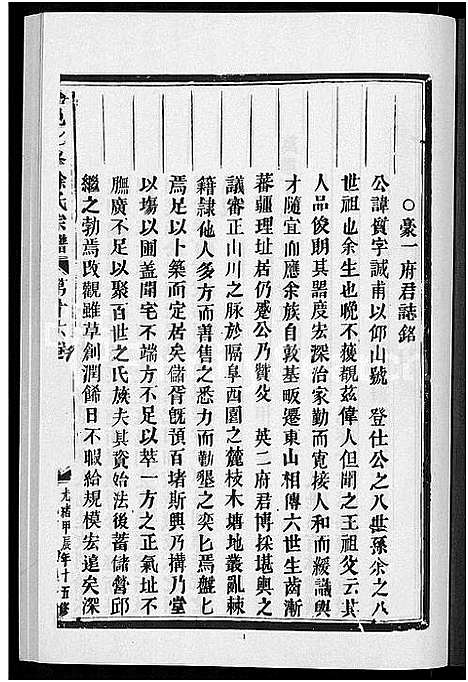 ○豪一府君誌銘
公諱質字誠甫以仰山號　登仕公之八世孫余之八
世祖也余生也晚不獲覩茲偉人但聞之王祖父云其
人品俊朗其器度宏深治家勤而寬接人和而緩識與
才隨宜而應余族自敦基畈遷東山相傳六世生齒漸
蕃疆理址居仍蹙公乃贊父　英二府君博採堪輿之
議審正山川之脉於隔阜西園之麓枝木塘地叢亂棘
籍隸他人多方而善售之焦力而勤墾之奕匕焉盤匕
焉足以卜築而定居矣儲胥旣預百堵斯興乃搆乃堂
以塲以圃蓋聞宅不端方不足以萃一方之正氣址不
膴廣不足以聚百世之氏族夫其資始法後蓄儲營邱
繼之勃焉改觀雖草創潤餙日不暇給規模宏遠矣深
徐氏宗譜
第十六卷
光緒甲辰年十五修
1